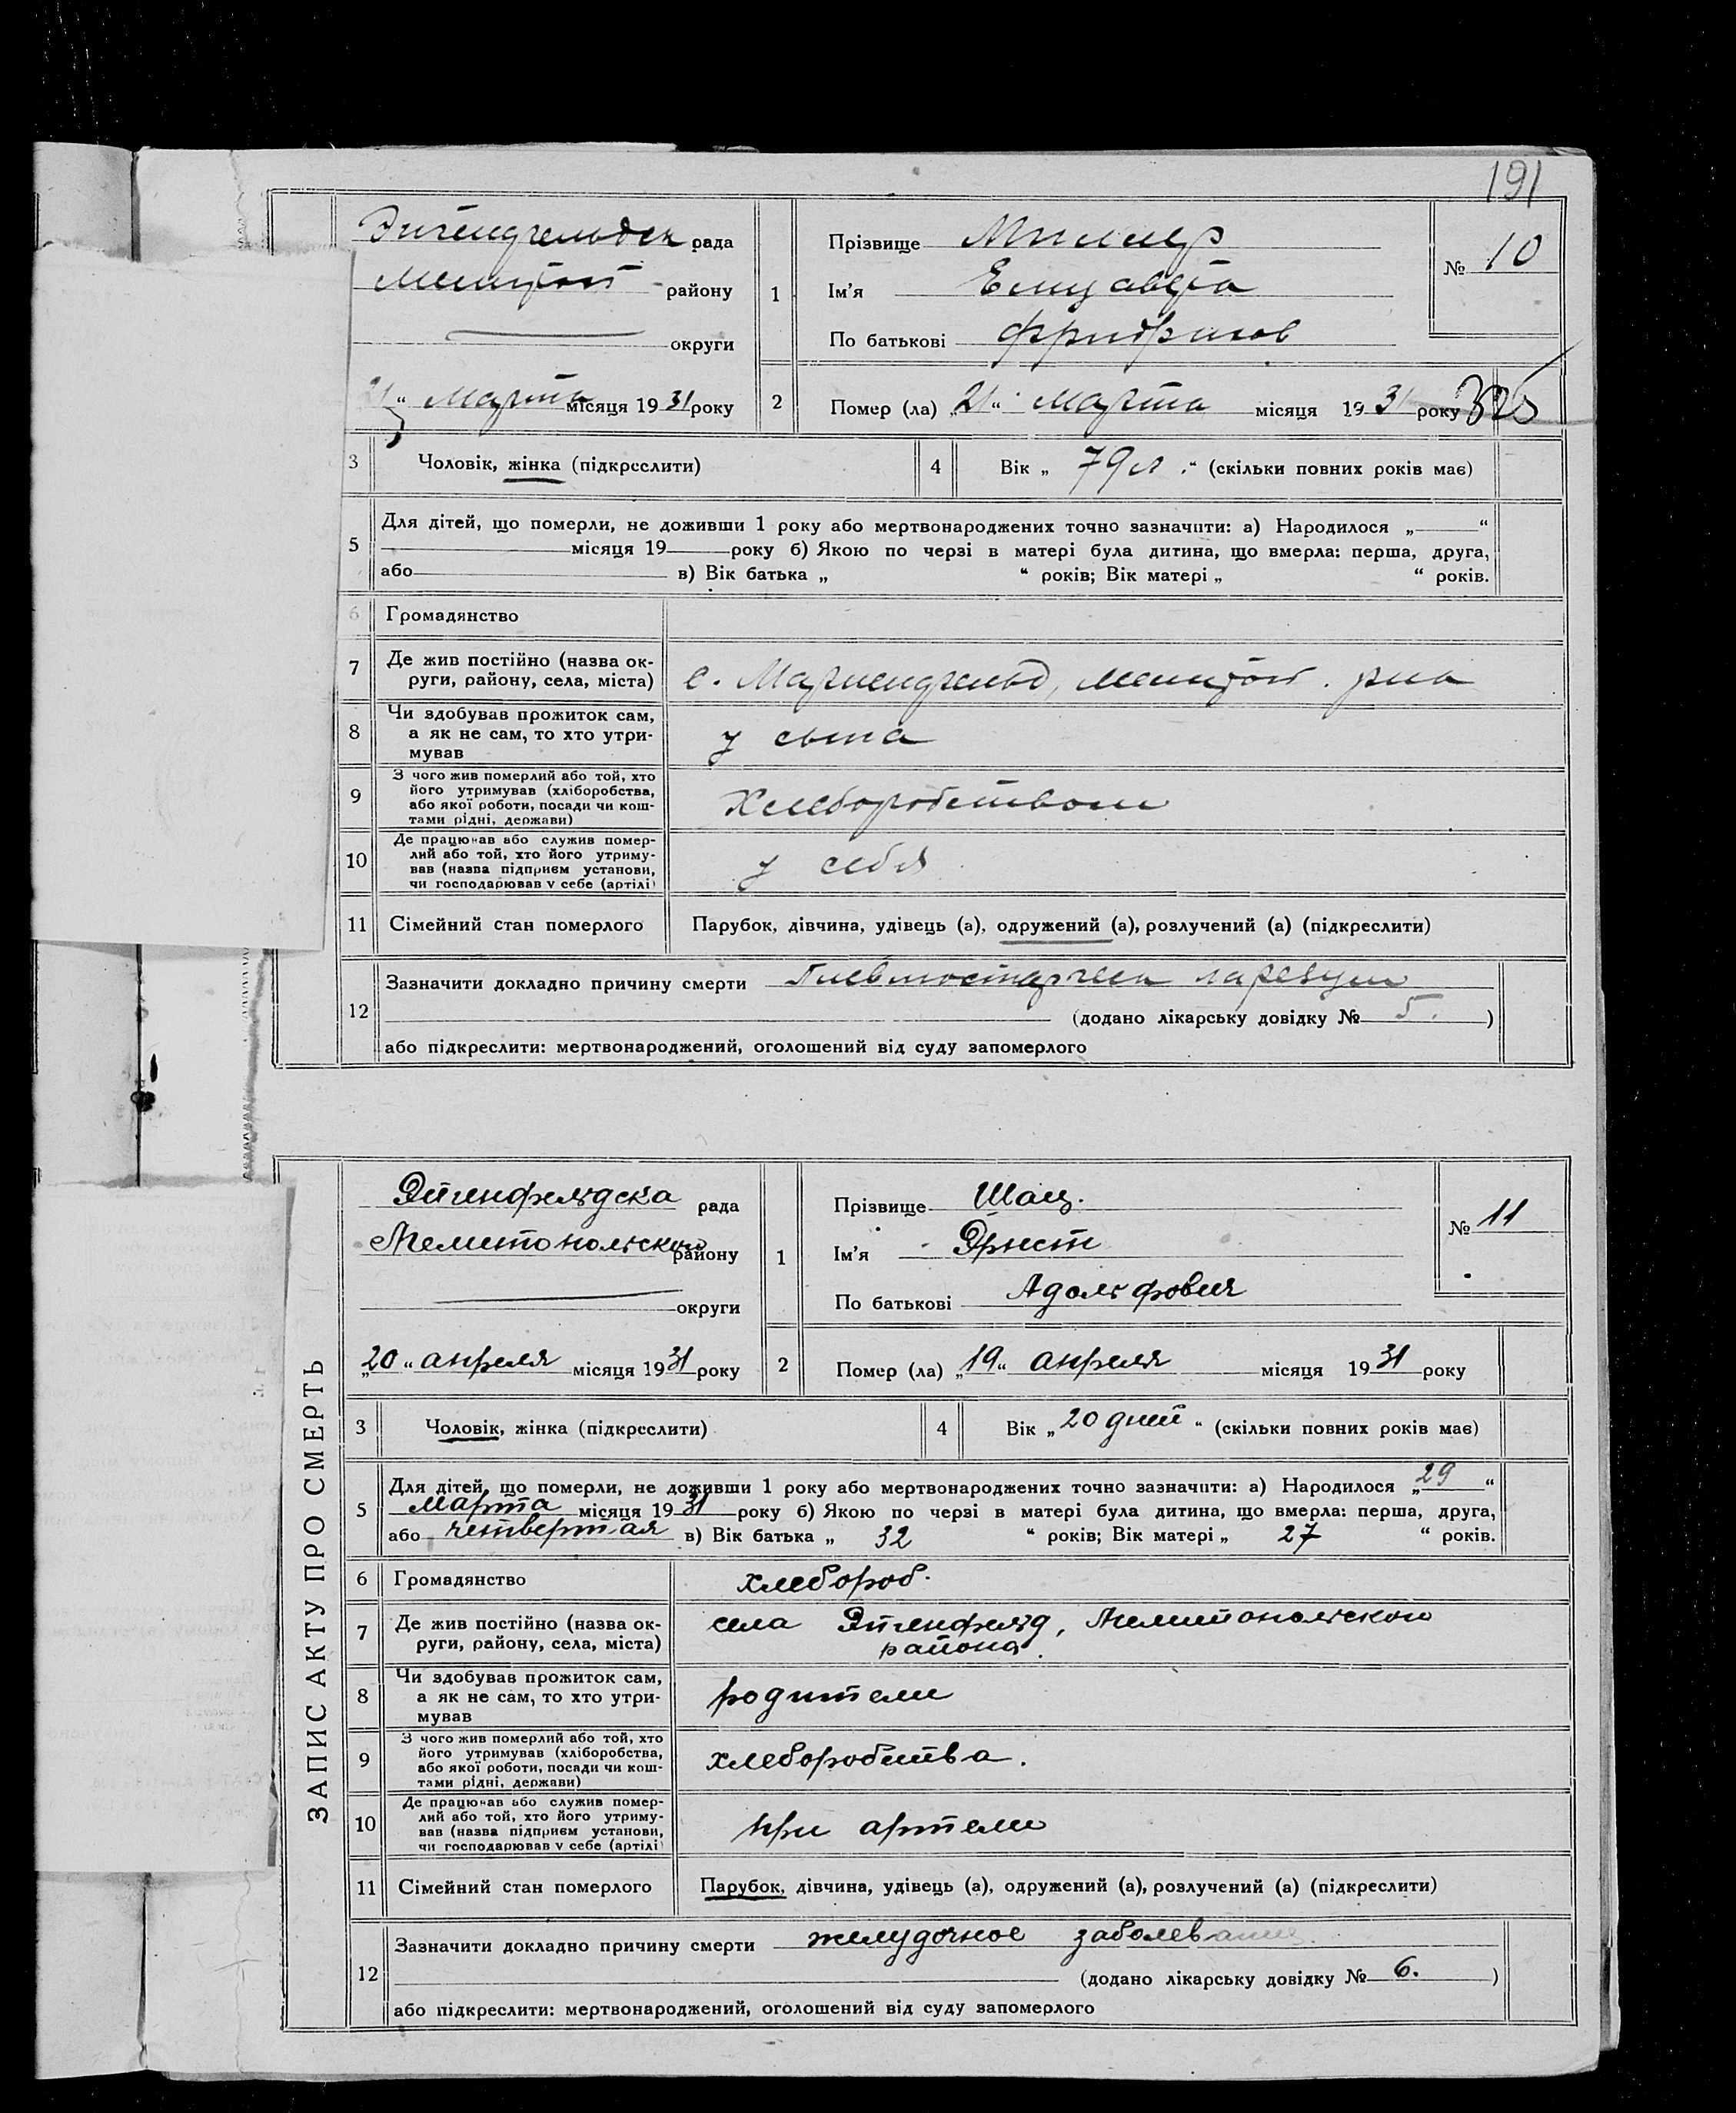 191
Эйгенфельдск рада
Мелитоп района району
округи
21 “ Марта місяця 1931 року
1
Прізвище Миллер
Ім’я Елизавета
По батькові Фридрихов
№ 10
2
Помер (ла) „21“ Марта місяця 1931 року
325
3
Чоловік, жінка (підкреслити)
4
Вік „ 79 л. “ (скільки повних років має)
5
Для дітей, що померли, не доживши 1 року або мертвонароджених точно зазначити: а) Народилося „ “
місяця 19 року б) Якою по черзі в матері була дитина, що вмерла: перша, друга,
або в) Вік батька „ “ років; Вік матері „ “ років.
6
Громадянство
7
Де жив постійно (назва ок-
руги, району, села, міста)
с. Мариенфельд, Мелитоп. р-на
8
Чи здобував прожиток сам,
а як не сам, то хто утри-
мував
у сына
9
З чого жив померлий або той, хто
його утримував (хліборобства,
або якої роботи, посади чи кош-
тами рідні, держави)
Хлеборобством
10
Де працював або служив помер-
лий або той, хто його утриму-
вав (назва підприєм установи,
чи господарював у себе (артілі)
у себя
11
Сімейний стан померлого
Парубок, дівчина, удівець (а), одружений (а), розлучений (а) (підкреслити)
12
Зазначити докладно причину смерти
(додано лікарську довідку № 5. )
або підкреслити: мертвонароджений, оголошений від суду запомерлого
ЗАПИС АКТУ ПРО СМЕРТЬ
Эйгенфельдска рада
Мелитопольского району
округи
„20“ апреля місяця 1931 року
1
Прізвище Шац.
Ім’я Эрнст
По батькові Адольфович
№ 11
2
Помер (ла) „19“ апреля місяця 1931 року
3
Чоловік, жінка (підкреслити)
4
Вік „ 20 дней “ (скільки повних років має)
5
Для дітей, що померли, не доживши 1 року або мертвонароджених точно зазначити: а) Народилося „29“
марта місяця 1931 року б) Якою по черзі в матері була дитина, що вмерла: перша, друга,
або четвертая в) Вік батька „ 32 “ років; Вік матері „ 27 “ років.
6
Громадянство
хлебороб.
7
Де жив постійно (назва ок-
руги, району, села, міста)
села Эйгенфельд, Мелитопольского
района.
8
Чи здобував прожиток сам,
а як не сам, то хто утри-
мував
родители
9
З чого жив померлий або той, хто
його утримував (хліборобства,
або якої роботи, посади чи кош-
тами рідні, держави)
хлеборобства.
10
Де працював або служив помер-
лий або той, хто його утриму-
вав (назва підприєм установи,
чи господарював у себе (артілі)
при артели
11
Сімейний стан померлого
Парубок, дівчина, удівець (а), одружений (а), розлучений (а) (підкреслити)
12
Зазначити докладно причину смерти желудочное заболевание.
(додано лікарську довідку № 6. )
або підкреслити: мертвонароджений, оголошений від суду запомерлого